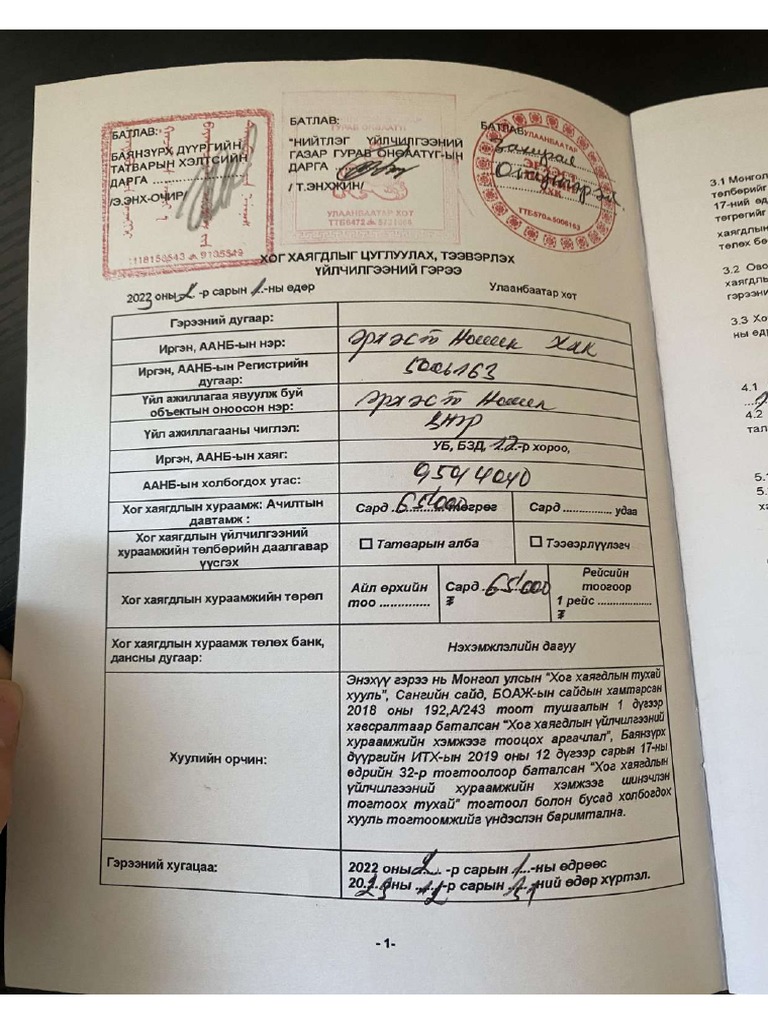 БАТЛАВ:
БАЯНЗҮРХ ДҮҮРГИЙН
ТАТВАРЫН ХЭЛТСИЙН
ДАРГА ....................
/Э.ЭНХ-ОЧИР/
1118150543 9105549
БАТЛАВ:
"НИЙТЛЭГ ҮЙЛЧИЛГЭЭНИЙ
ГАЗАР ГУРАВ ОНӨӨАТҮГ-ЫН
ДАРГА
/ Т.ЭНХЖИН/
УЛААНБААТАР ХОТ
БАТЛАВ:
УЛААНБААТАР
Захирал
ХХК
ТТБ570 5006163
ХОГ ХАЯГДЛЫГ ЦУГЛУУЛАХ, ТЭЭВЭРЛЭХ
ҮЙЛЧИЛГЭЭНИЙ ГЭРЭЭ
2023 оны 2 -р сарын 1.-ны өдөр Улаанбаатар хот
Гэрээний дугаар:
Иргэн, ААНБ-ын нэр: Эрхэст Номин ХХК
Иргэн, ААНБ-ын Регистрийн
дугаар: 5006163
Үйл ажиллагаа явуулж буй
объектын оноосон нэр: Эрхэст Номин
Үйл ажиллагааны чиглэл:
Иргэн, ААНБ-ын хаяг: УБ, БЗД, 12-р хороо,
ААНБ-ын холбогдох утас: 95944040
Хог хаягдлын хураамж: Ачилтын
давтамж : Сард 65'000 төгрөг Сард .............. удаа
Хог хаягдлын үйлчилгээний
хураамжийн төлбөрийн даалгавар
үүсгэх ☐ Татварын алба ☐ Тээвэрлүүлэгч
Хог хаягдлын хураамжийн төрөл
Айл өрхийн
тоо ..............
Сард 65'000
₮
Рейсийн
тоогоор
1 рейс ...................
₮
Хог хаягдлын хураамж төлөх банк,
дансны дугаар: Нэхэмжлэлийн дагуу
Хуулийн орчин:
Энэхүү гэрээ нь Монгол улсын "Хог хаягдлын тухай
хууль", Сангийн сайд, БОАЖ-ын сайдын хамтарсан
2018 оны 192,А/243 тоот тушаалын 1 дүгээр
хавсралтаар баталсан "Хог хаягдлын үйлчилгээний
хураамжийн хэмжээг тооцох аргачлал", Баянзүрх
дүүргийн ИТХ-ын 2019 оны 12 дугээр сарын 17-ны
өдрийн 32-р тогтоолоор баталсан "Хог хаягдлын
үйлчилгээний хураамжийн хэмжээг шинэчлэн
тогтоох тухай" тогтоол болон бусад холбогдох
хууль тогтоомжийг үндэслэн баримтална.
Гэрээний хугацаа:
2022 оны 2 -р сарын 1.-ны өдрөөс
2023 оны 12-р сарын 31-ний өдөр хүртэл.
- 1-
3.1 Монгол
төлбөрийг
17-ний өд
төгрөгийг
хаягдлын
төлөх бө
3.2 Ово
хаягдлы
гэрээни
3.3 Хо
ны өдр
4.1
4.2
тал
5.1
5.
ха